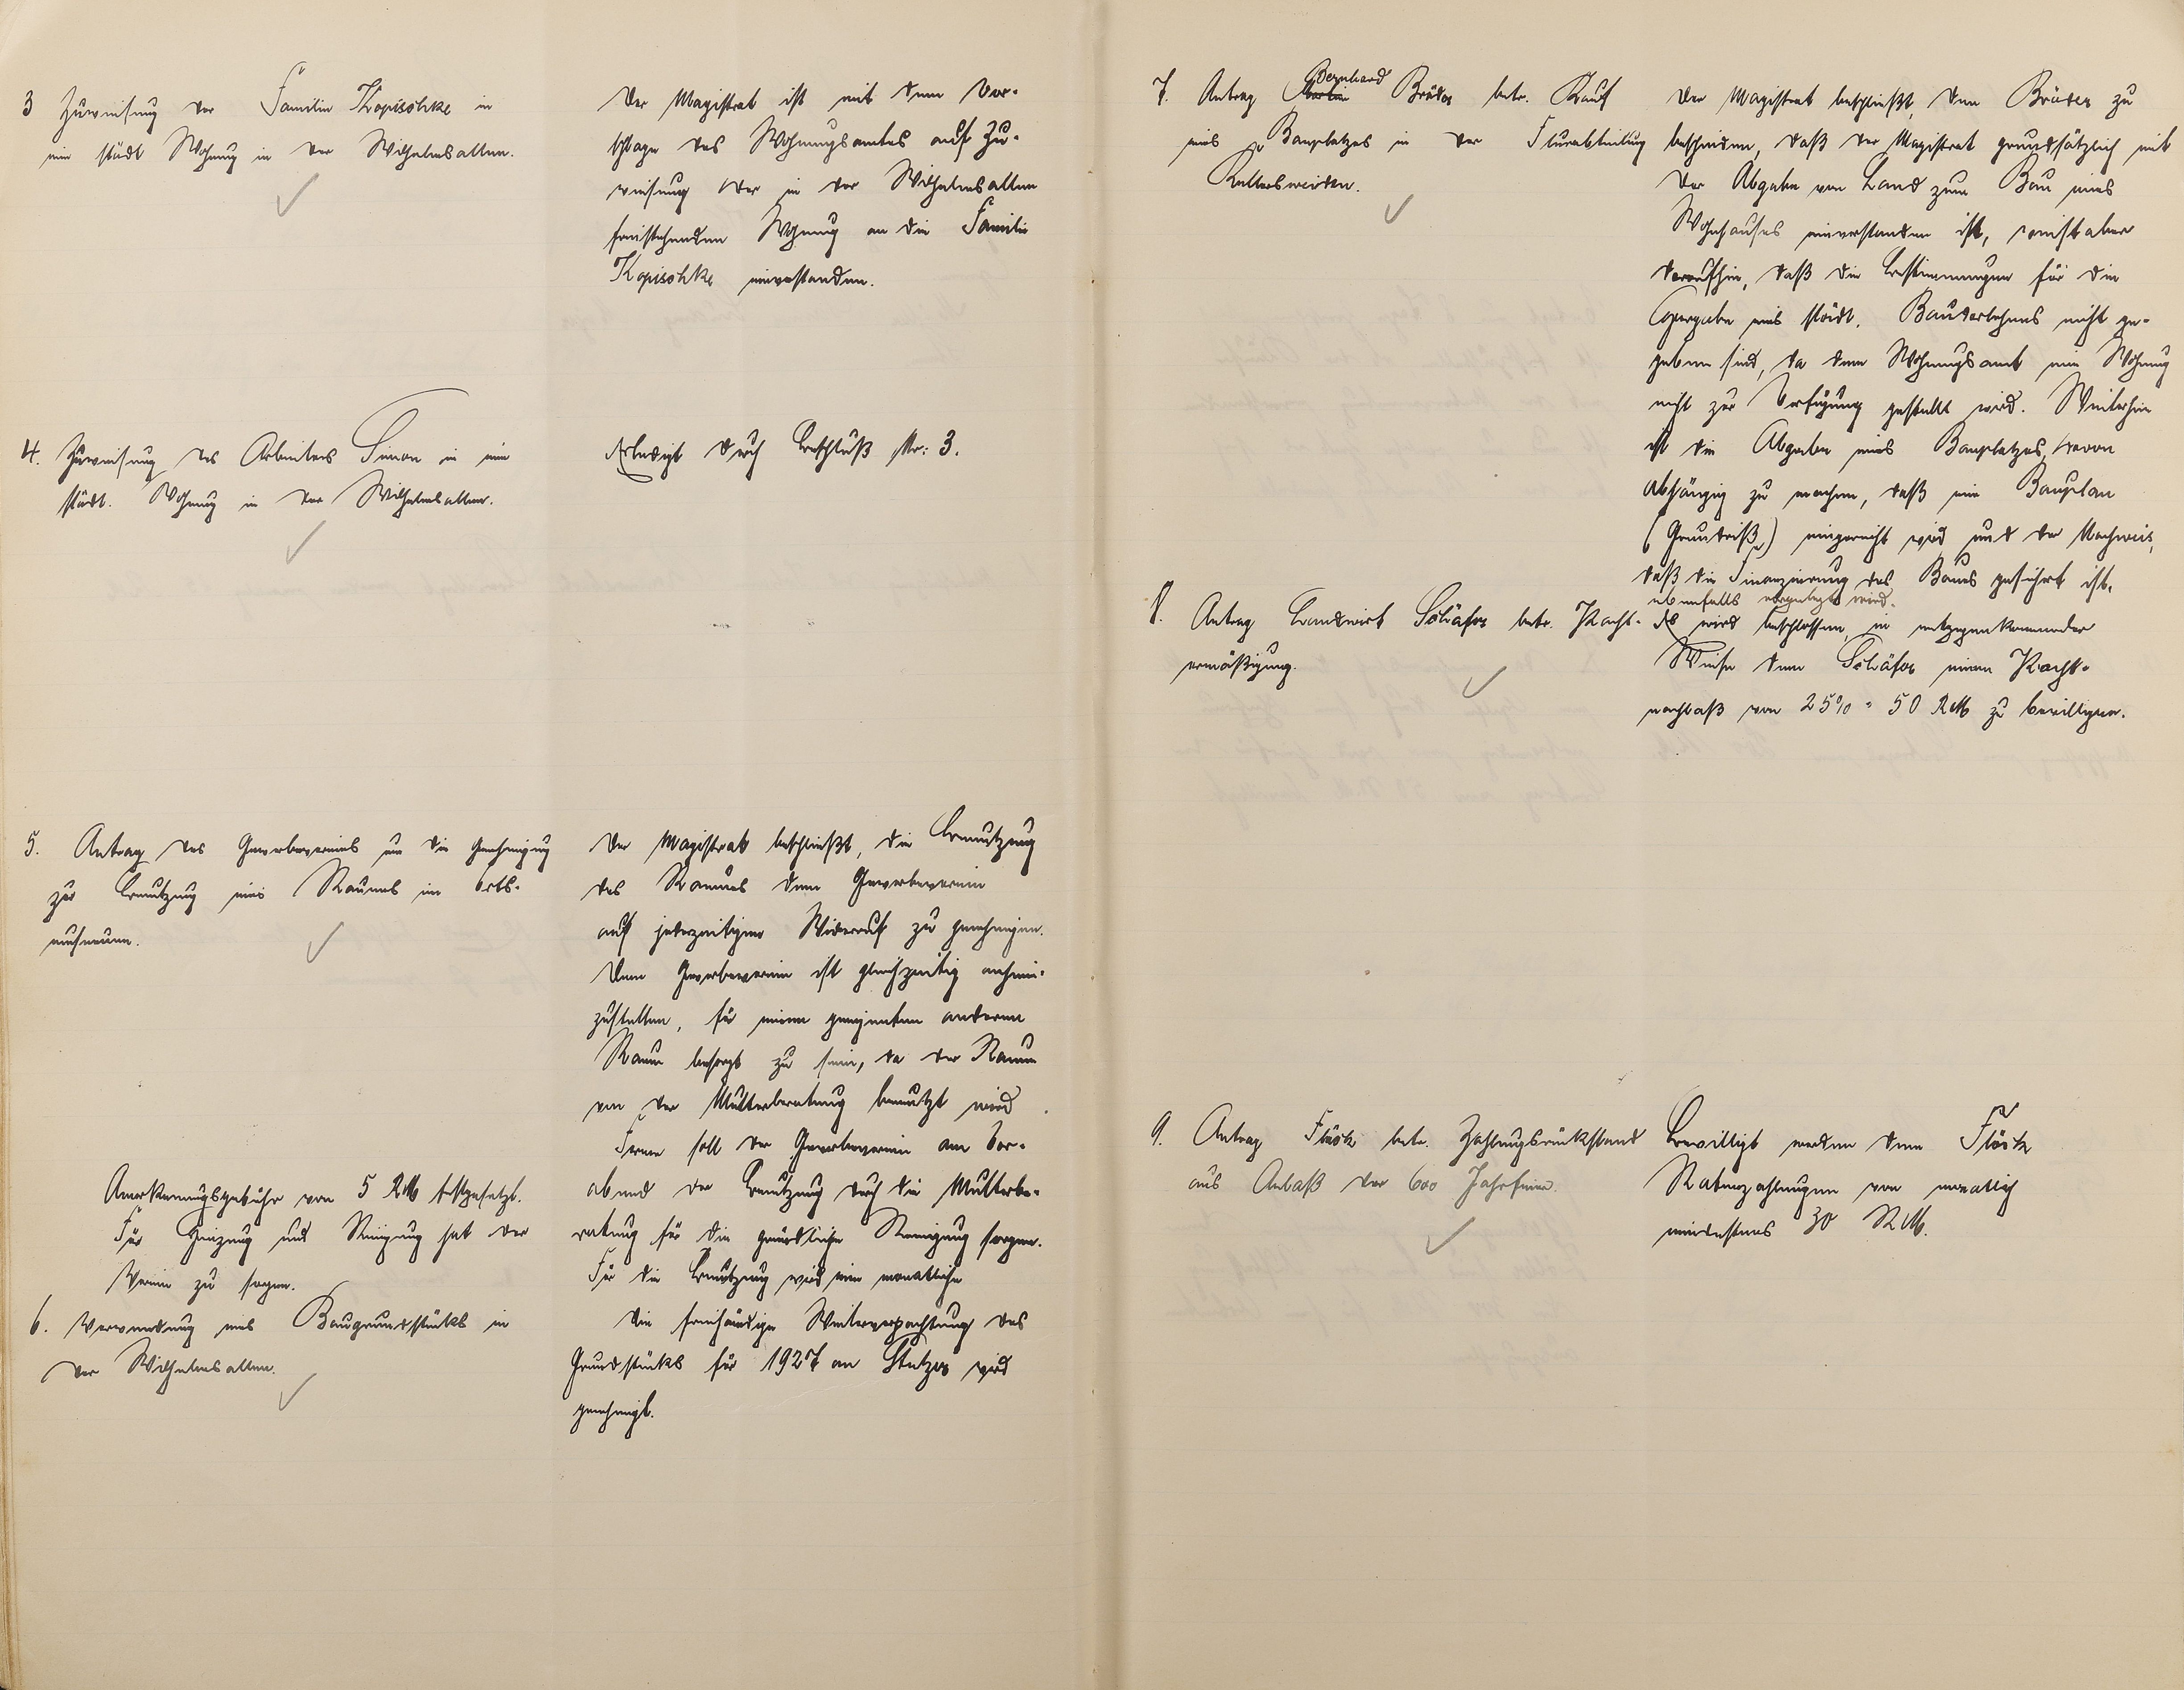 3 Zuweisung der Familie Kopischke in
eine städt Wohnung in der Wilhelmsallee.
Der Magistrat ist mit dem Vor-
schlage des Wohnungsamtes auf Zu-
weisung der in der Wilhelmsallee
freistehenden Wohnung an die Familie
Kopischke einverstanden.
4. Zuweisung des Arbeiters Simon in eine
städt. Wohnung in der Wilhelmsallee.
Erledigt durch Beschluß Nr: 3.
5. Antrag des Gewerbevereins um die Genehmigung
zur Benutzung eines Raumes im Orts-
museum.
Der Magistrat beschließt, die Benutzung
des Raumes dem Gewerbeverein
auf jederzeitigen Widerruf zu genehmigen.
Dem Gewerbeverein ist gleichzeitig anheim-
zustellen, für einen geeigneten anderen
Raum besorgt zu sein, da der Raum
von der Mütterberatung benutzt wird
Ferner soll der Gewerbeverein am Vor-
abend der Benutzung durch die Mutterbe-
ratung für die gründliche Reinigung sorgen.
Für die Benutzung wird eine monatliche
Anerkennungsgebühr von 5 RM festgesetzt.
Für Heizung und Reinigung hat der
Verein zu sorgen.
6. Verwendung eines Baugrundstücks in
der Wilhelmsallee.
Die freihändige Weiterverpachtung des
Grundstücks für 1927 an Stutzer wird
genehmigt.
7. Antrag Bernhard Bräder betr. Kauf
eines Bauplatzes in der Flurabteilung
Kellersweiden.
Der Magistrat beschließt, dem Bräder zu
bescheiden, daß der Magistrat grundsätzlich mit
der Abgabe von Land zum Bau eines
Wohnhauses einverstanden ist, weist aber
daraufhin, daß die Bestimmungen für die
Hergabe eines städt. Baudarlehens nicht ge-
geben sind, da dem Wohnungsamt eine Wohnung
nicht zur Verfügung gestellt wird. Weiterhin
ist die Abgabe eines Bauplatzes davon
abhängig zu machen, daß ein Bauplan
(Grundriß) eingereicht wird und der Nachweis,
daß die Finanzierung des Baues gesichert ist,
ebenfalls vorgelegt wird.
8. Antrag Landwirt Schäfer betr. Pacht-
ermäßigung.
Es wird beschlossen, in entgegenkommender
Weise dem Schäfer einen Pacht-
nachlaß von 25% = 50 RM zu bewilligen.
9. Antrag Flöck betr. Zahlungsrückstand
aus Anlaß der 600 Jahrfeier.
Bewilligt werden dem Flöck
Ratenzahlungen von monatlich
mindestens 30 RM.